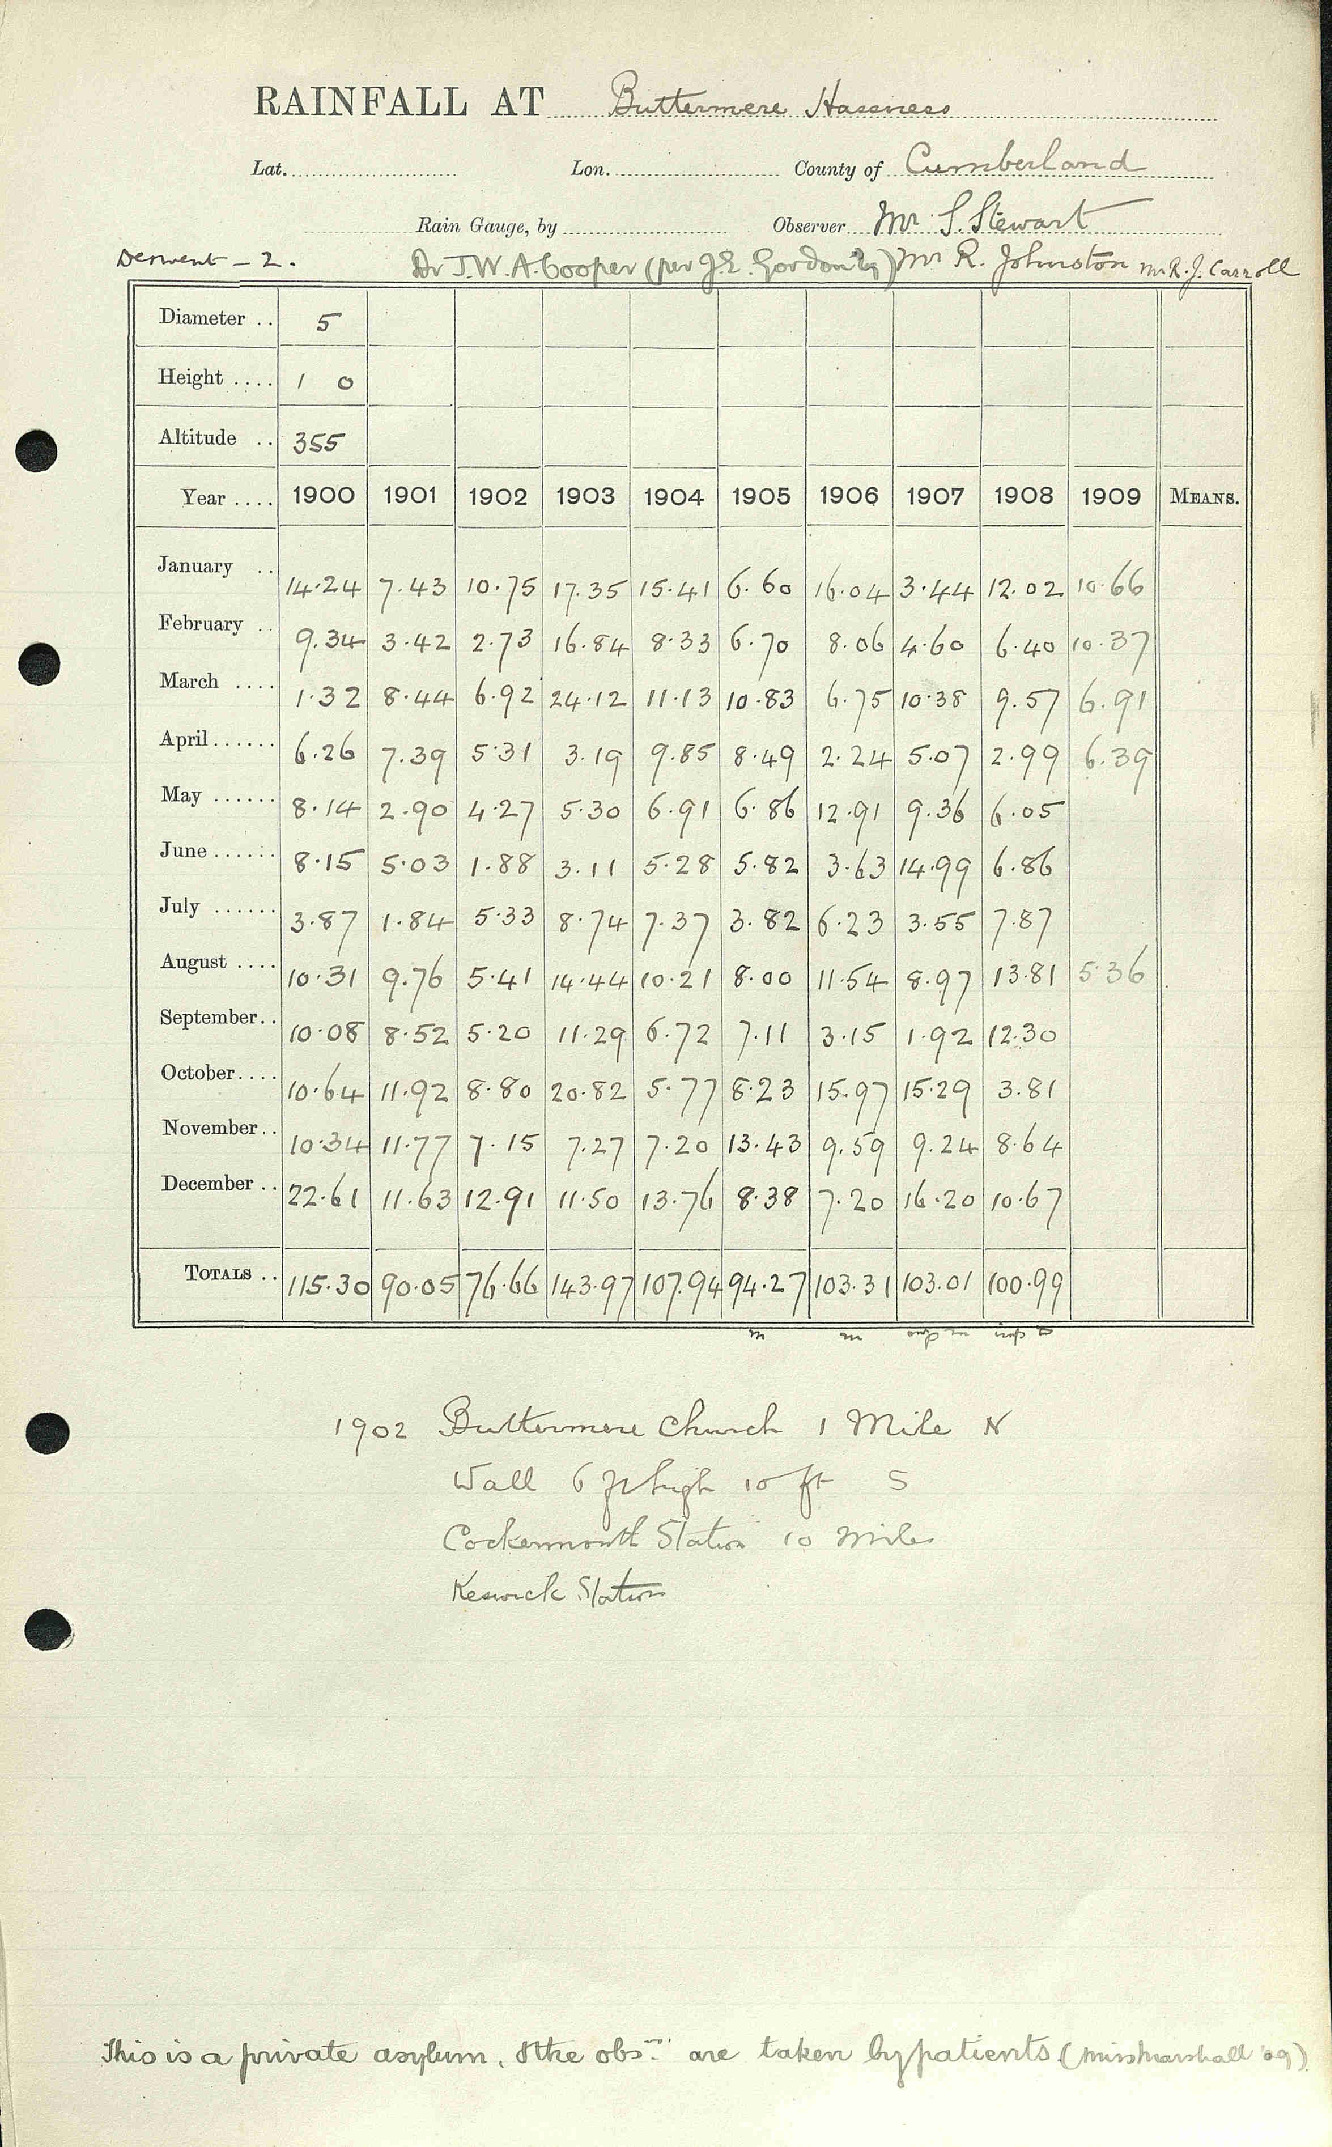 RAINFALL AT Buttermere Hassness
Lat. Lon. County of Cumberland
Rain Gauge, by Observer Mr S. Stewart
Derwent - 2. Dr J.W.A. Cooper (per J.E. Gordon Esq) Mr R. Johnston Mr R.J. Carroll
Diameter .. 5
Height .... 1 0
Altitude .. 355
Year .... 1900 1901 1902 1903 1904 1905 1906 1907 1908 1909 MEANS.
January .. 14.24 7.43 10.75 17.35 15.41 6.60 16.04 3.44 12.02 10.66
February .. 9.34 3.42 2.73 16.84 8.33 6.70 8.06 4.60 6.40 10.37
March .... 1.32 8.44 6.92 24.12 11.13 10.83 6.75 10.38 9.57 6.91
April ...... 6.26 7.39 5.31 3.19 9.85 8.49 2.24 5.07 2.99 6.39
May ...... 8.14 2.90 4.27 5.30 6.91 6.86 12.91 9.36 6.05
June ...... 8.15 5.03 1.88 3.11 5.28 5.82 3.63 14.99 6.86
July ...... 3.87 1.84 5.33 8.74 7.37 3.82 6.23 3.55 7.87
August .... 10.31 9.76 5.41 14.44 10.21 8.00 11.54 8.97 13.81 5.36
September.. 10.08 8.52 5.20 11.29 6.72 7.11 3.15 1.92 12.30
October.... 10.64 11.92 8.80 20.82 5.77 8.23 15.97 15.29 3.81
November.. 10.34 11.77 7.15 7.27 7.20 13.43 9.59 9.24 8.64
December .. 22.61 11.63 12.91 11.50 13.76 8.38 7.20 16.20 10.67
TOTALS .. 115.30 90.05 76.66 143.97 107.94 94.27 103.31 103.01 100.99
1902 Buttermere Church 1 Mile N
Wall 6 ft high 10 ft S
Cockermouth Station 10 Miles
Keswick Station
This is a private asylum, & the obsns. are taken by patients (Miss Marshall '09)